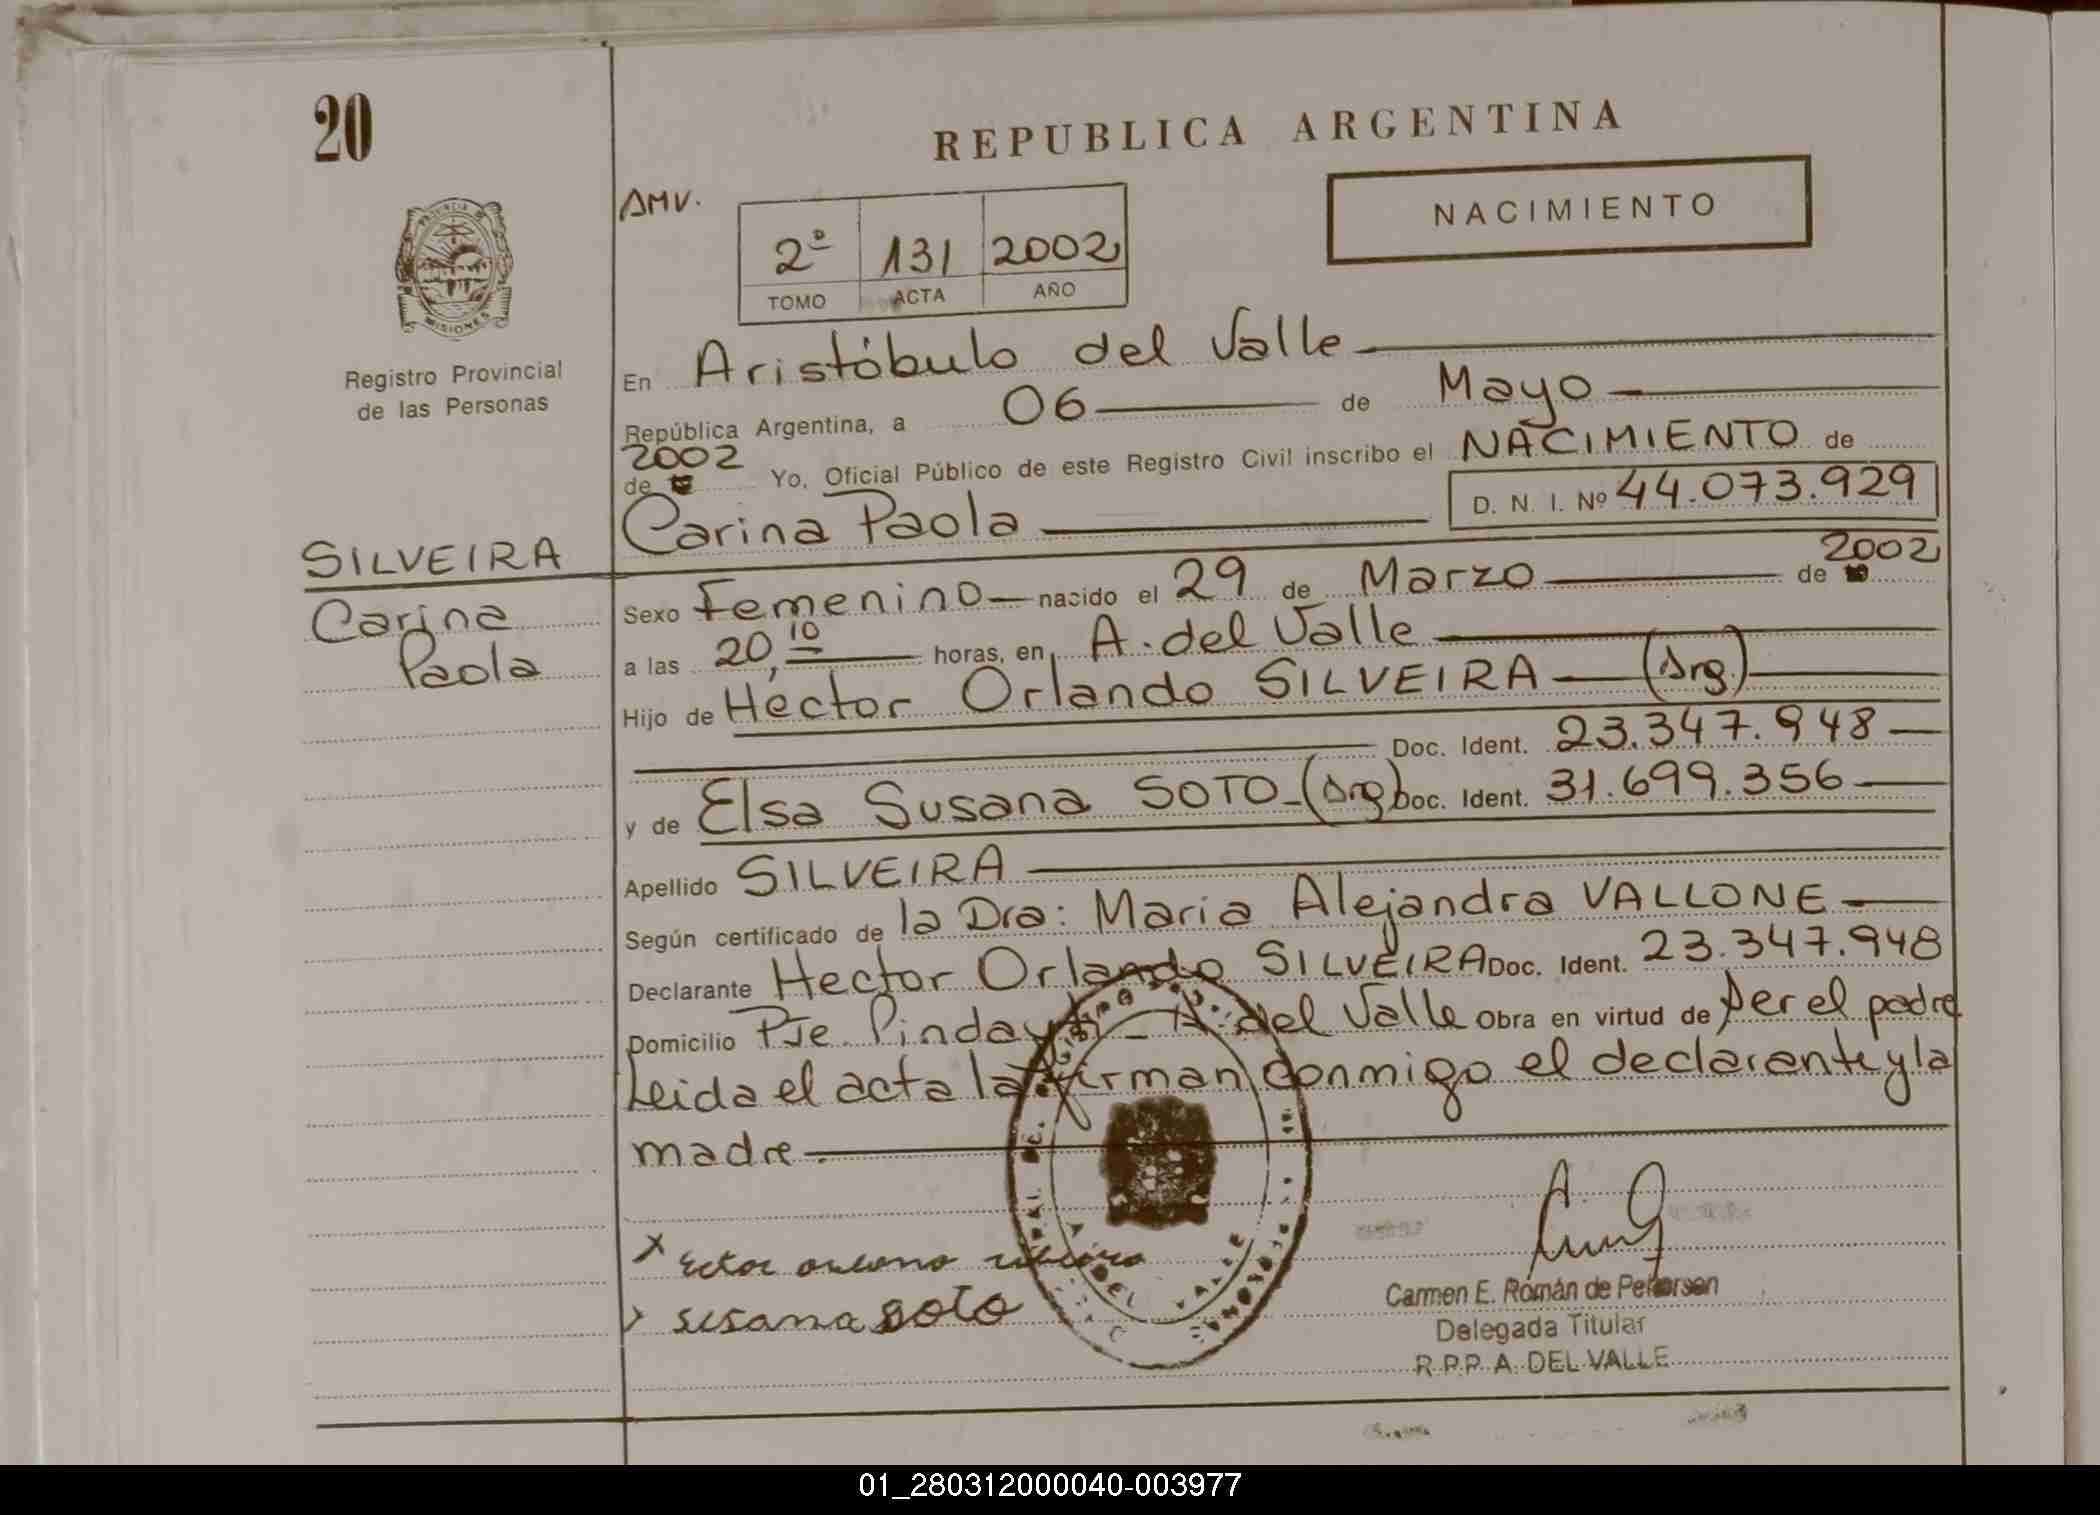 20
REPUBLICA ARGENTINA
NACIMIENTO
AMV.
2º 131 2002
TOMO ACTA AÑO
PROVINCIA DE
MISIONES
Registro Provincial
de las Personas
En Aristóbulo del Valle
República Argentina, a 06 de Mayo
2002
de Yo, Oficial Público de este Registro Civil inscribo el NACIMIENTO de
Carina Paola D. N. I. Nº 44.073.929
SILVEIRA
Carina
Paola
2002
Sexo Femenino nacido el 29 de Marzo de
a las 20,10 horas, en A. del Valle
Hijo de Hector Orlando SILVEIRA (Arg.)
Doc. Ident. 23.347.948
y de Elsa Susana SOTO (Arg) Doc. Ident. 31.699.356
Apellido SILVEIRA
Según certificado de la Dra: Maria Alejandra VALLONE
Declarante Hector Orlando SILVEIRA Doc. Ident. 23.347.948
Domicilio Pje. Pindayti - A. del Valle Obra en virtud de ser el padre
Leida el acta la firman conmigo el declarante y la
madre.
x
susana soto
A. DEL VALLE
Carmen E. Román de Petterson
Delegada Titular
R.P.P. A. DEL VALLE
01_280312000040-003977